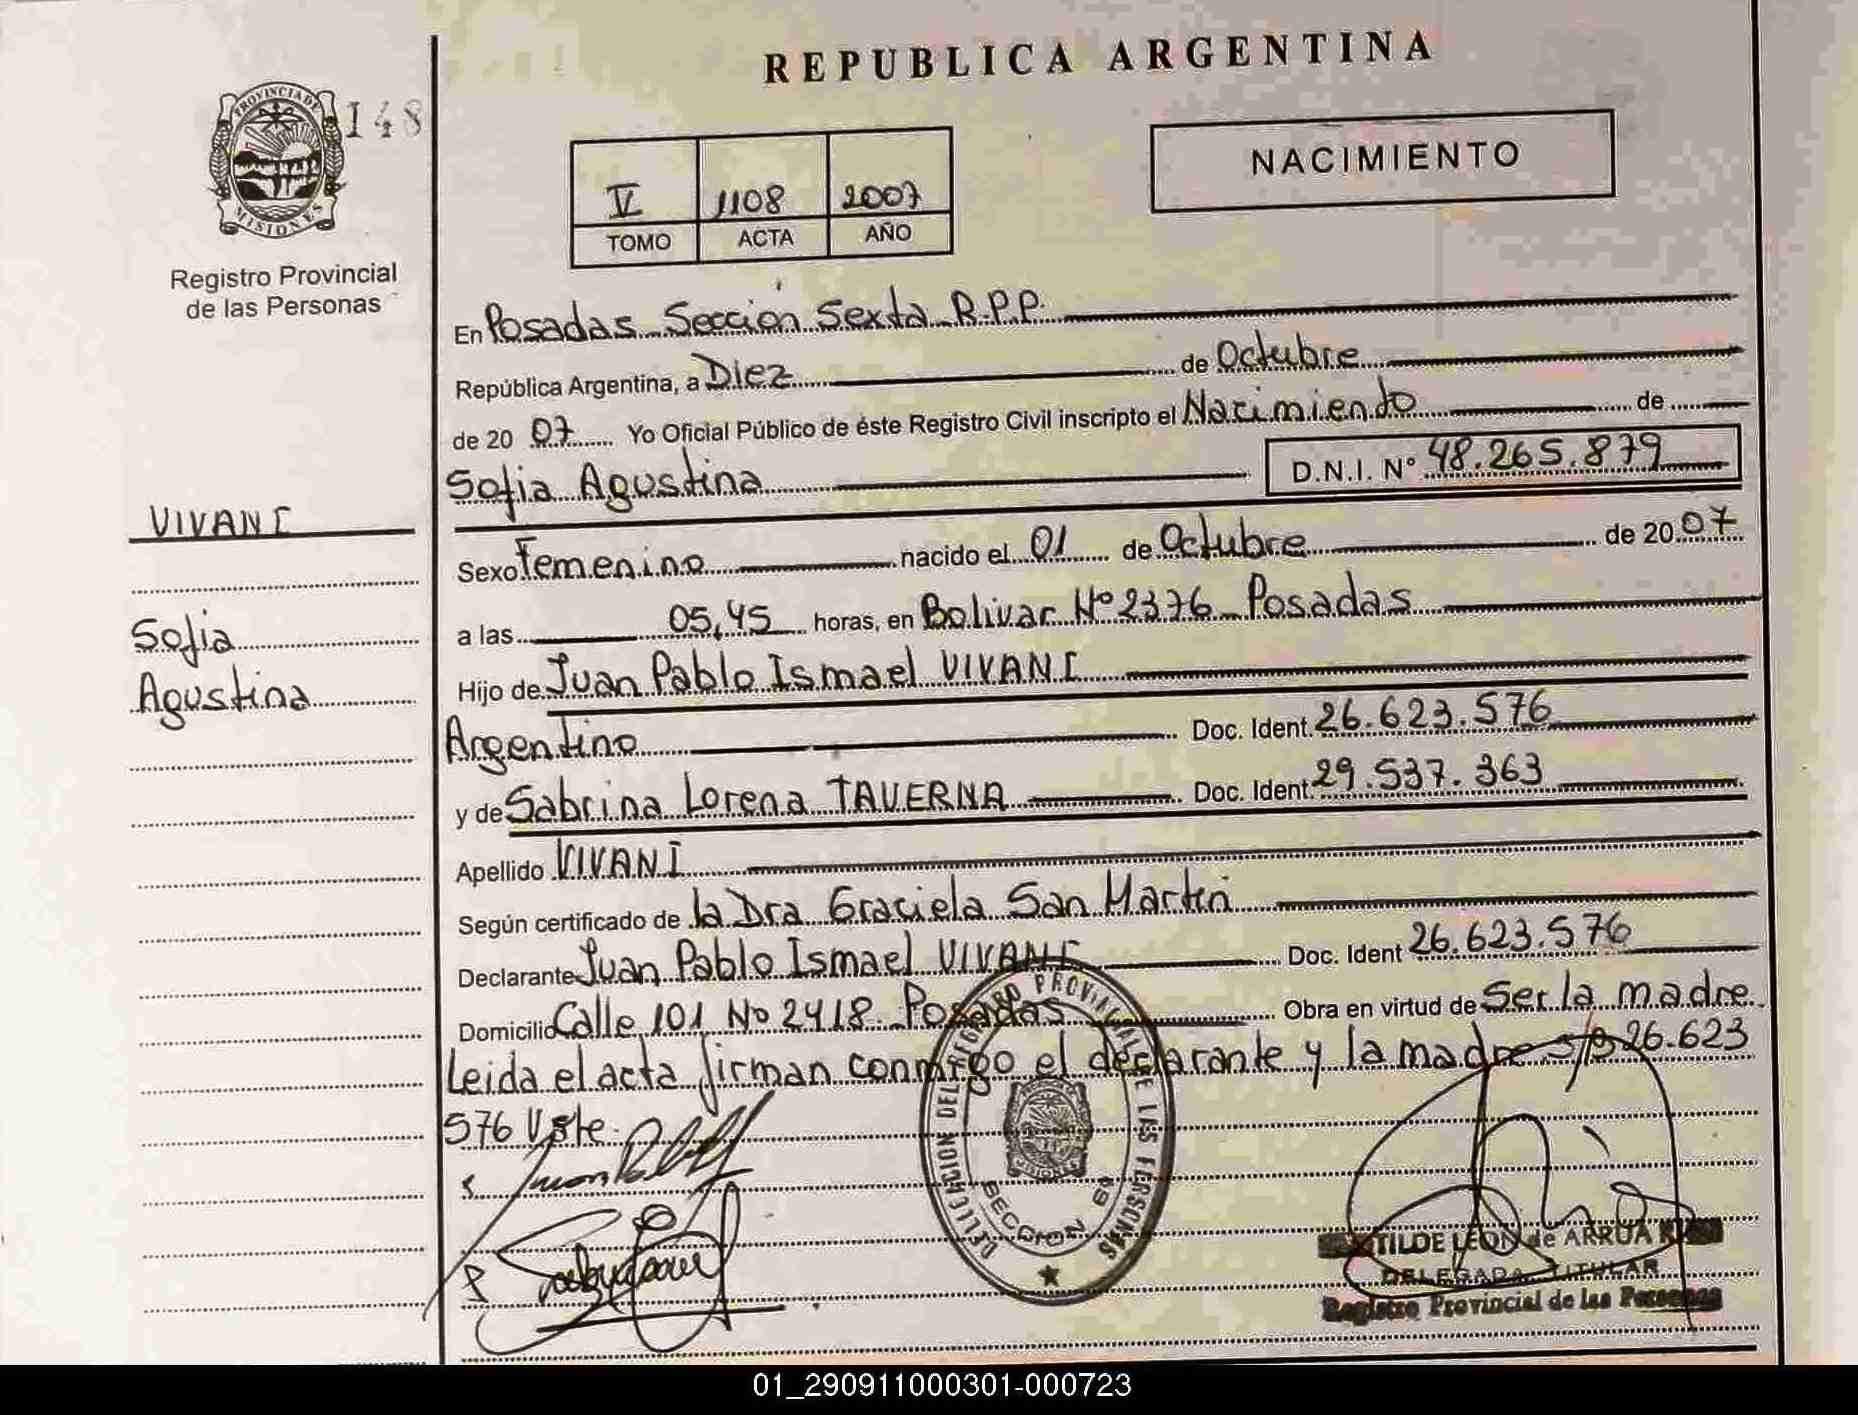 REPUBLICA ARGENTINA
PROVINCIA DE
MISIONES
148
Registro Provincial
de las Personas
V 1108 2007
TOMO ACTA AÑO
NACIMIENTO
En Posadas Sección Sexta R.P.P.
República Argentina, a Diez de Octubre
de 20 07 Yo Oficial Público de éste Registro Civil inscripto el Nacimiento de
Sofia Agustina D.N.I. N° 48.265.879
VIVANI
Sofia
Agustina
Sexo Femenino nacido el 01 de Octubre de 20 07
a las 05,45 horas, en Bolivar N° 2376 Posadas
Hijo de Juan Pablo Ismael VIVANI
Argentino Doc. Ident. 26.623.576
y de Sabrina Lorena TAVERNA Doc. Ident. 29.537.363
Apellido VIVANI
Según certificado de la Dra Graciela San Martin
Declarante Juan Pablo Ismael VIVANI Doc. Ident 26.623.576
Domicilio Calle 101 No 2418 Posadas Obra en virtud de Ser la madre
Leida el acta firman conmigo el declarante y la madre s/b 26.623
576 Vale
DELEGACION DEL REGISTRO PROVINCIAL DE LAS PERSONAS
MISIONES
SECCION 6a
TILDE LEON de ARRUA
DELEGADA TITULAR
Registro Provincial de las Personas
01_290911000301-000723